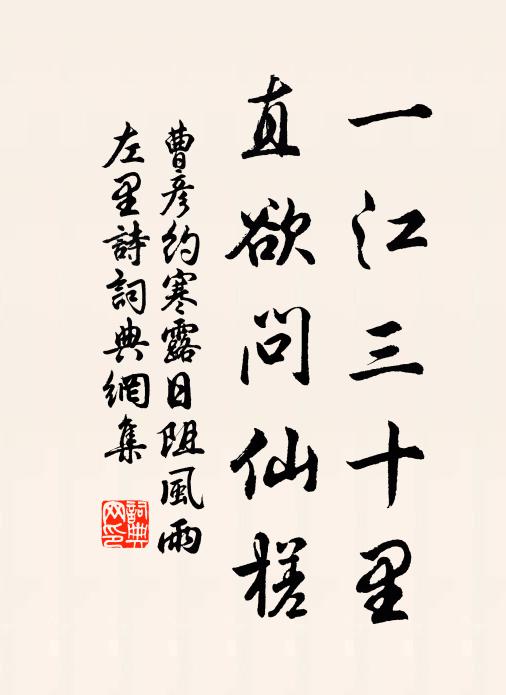 一江三十里
直欲問仙槎
曹彦約寒露日阻風雨
左里詩詞典網集
詞典网印